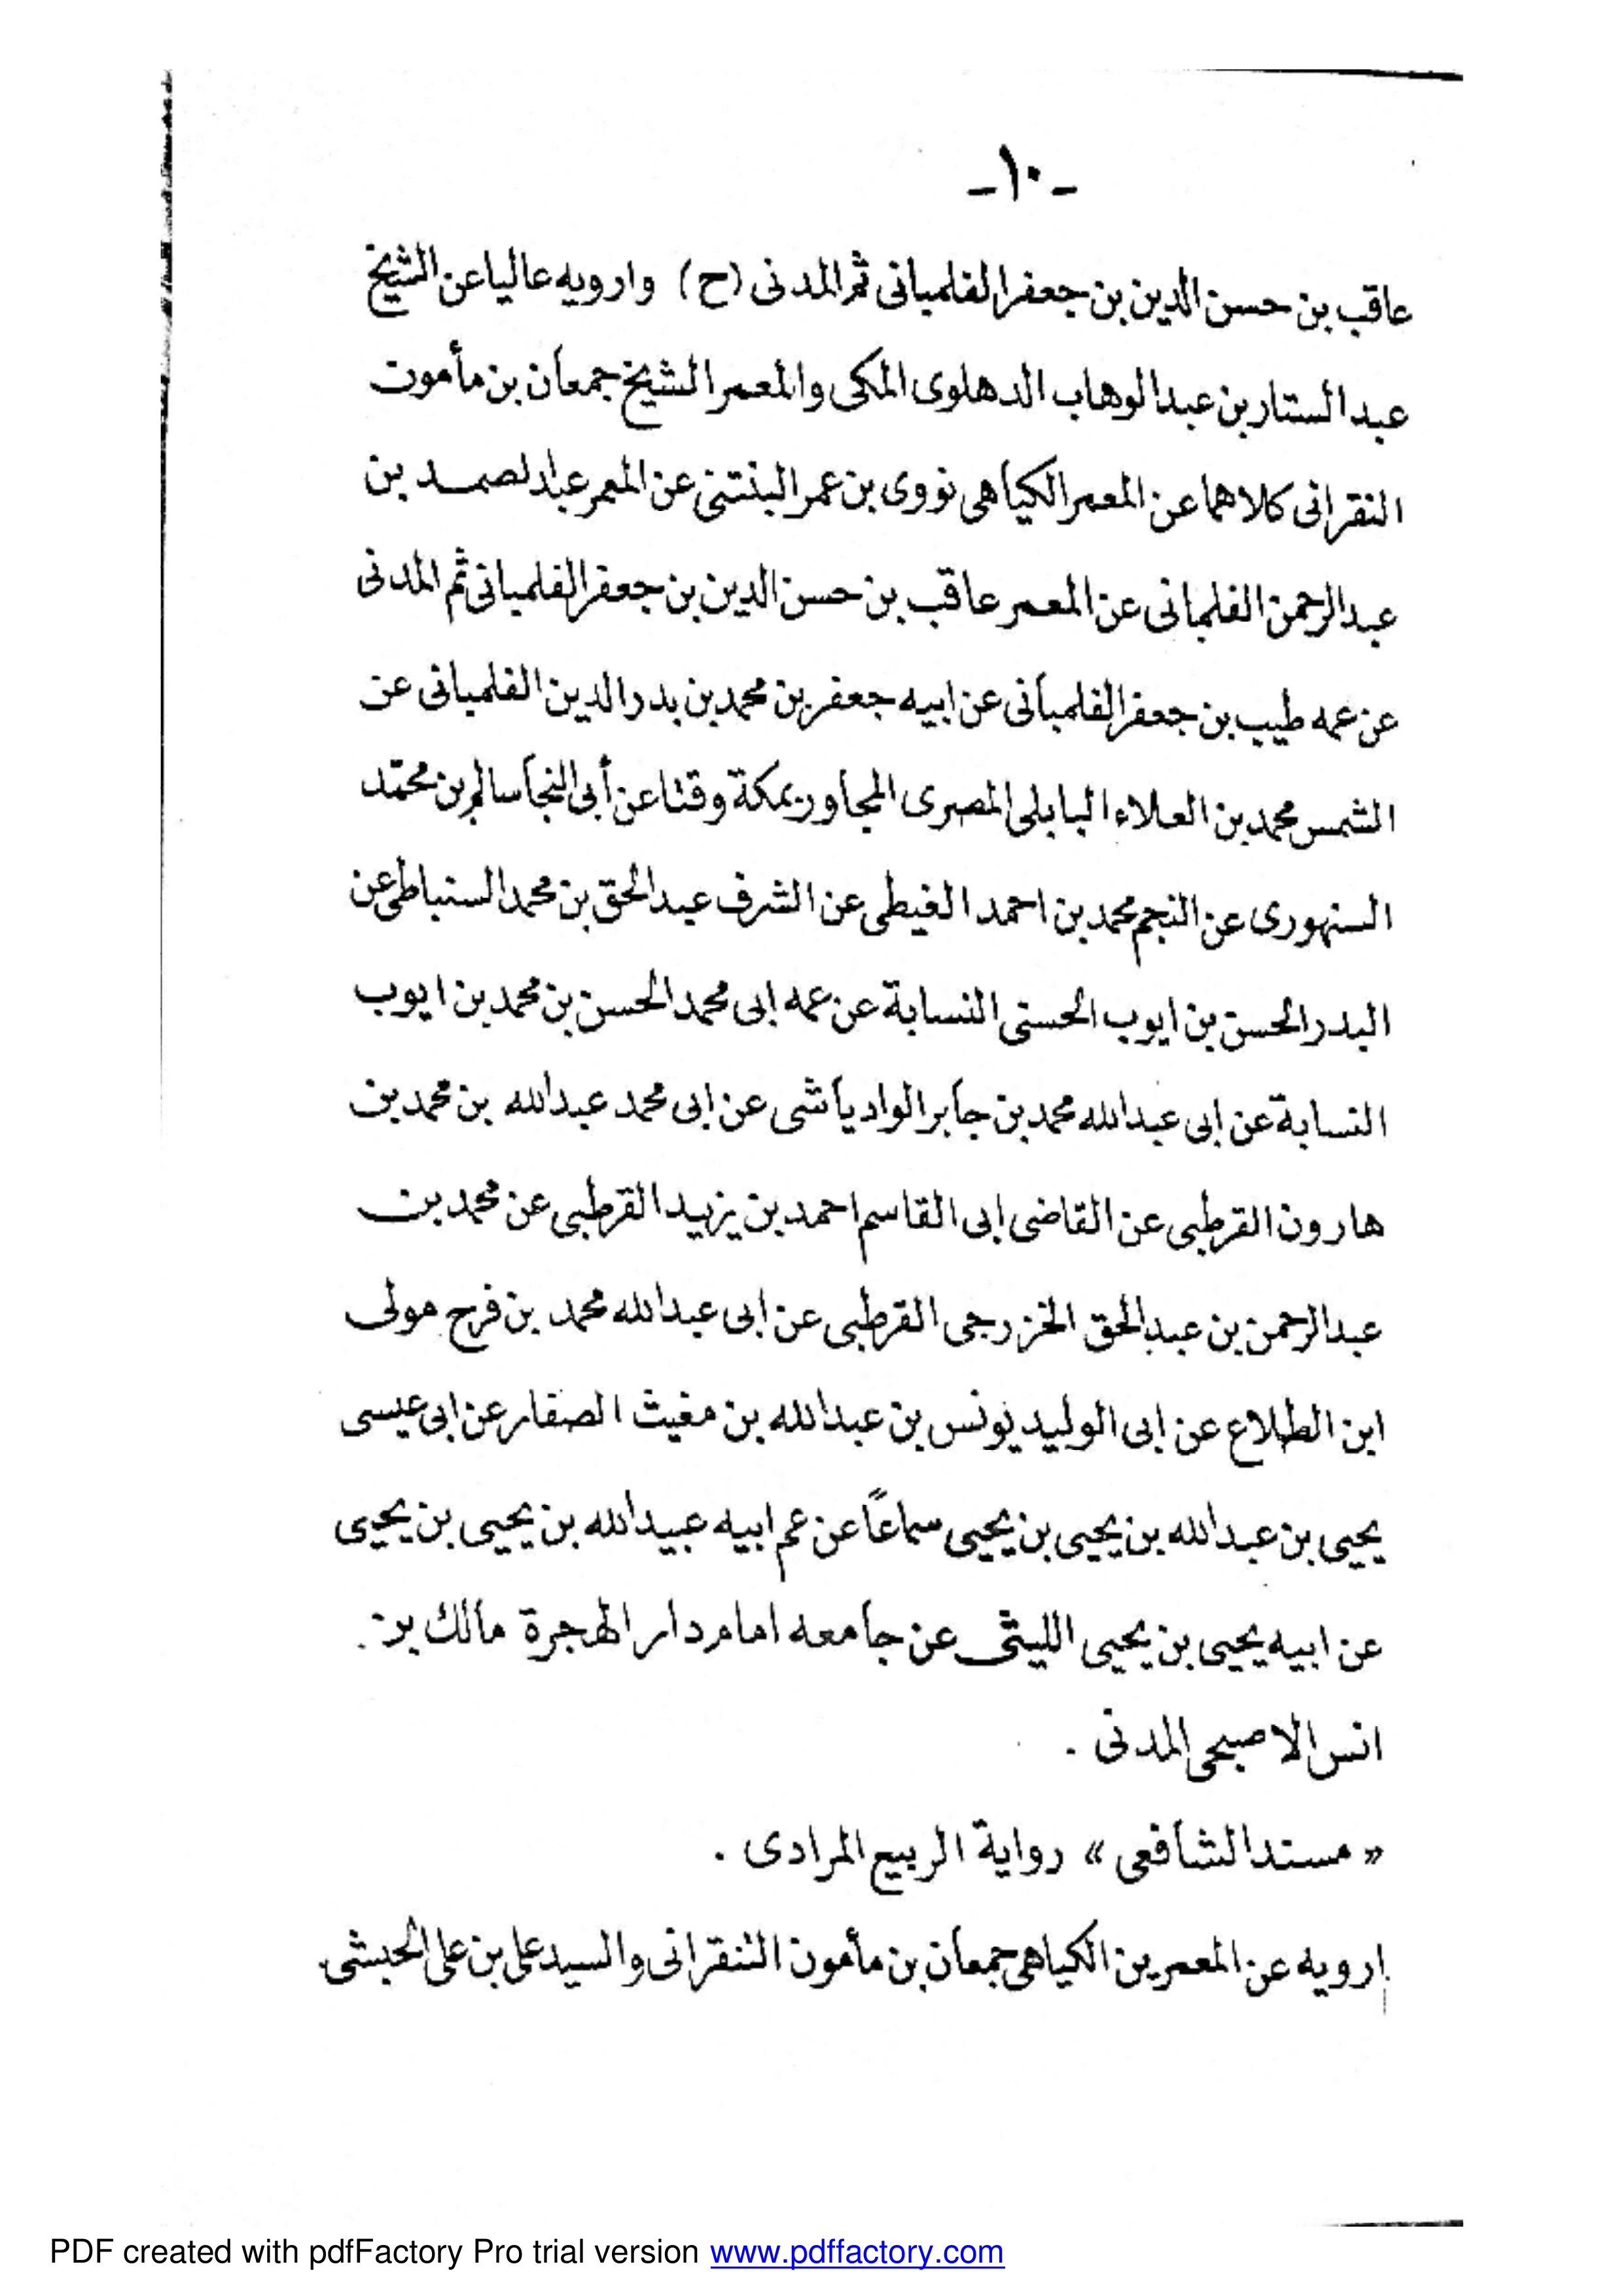 -١٠-
عاقب بن حسن الدين بن جعفر الفلمبانى ثم المدنى (ح) وارويه عاليا عن الشيخ
عبد الستار بن عبد الوهاب الدهلوى المكى والمعمر الشيخ جمعان بن مأموت
النقرانى كلاهما عن المعمر الكياهى نووى بن عمر البنتنى عن المعمر عبد الصمد بن
عبد الرحمن الفلمبانى عن المعمر عاقب بن حسن الدين بن جعفر الفلمبانى ثم المدنى
عن عمه طيب بن جعفر الفلمبانى عن ابيه جعفر بن محمد بن بدر الدين الفلمبانى عن
الشمس محمد بن العلاء البابلى المصرى المجاور بمكة وقتا عن أبى النجا سالم بن محمّد
السنهورى عن النجم محمد بن احمد الغيطى عن الشرف عبد الحق بن محمد السنباطى عن
البدر الحسن بن ايوب الحسنى النسابة عن عمه ابى محمد الحسن بن محمد بن ايوب
النسابة عن ابى عبد الله محمد بن جابر الوادياشى عن ابى محمد عبد الله بن محمد بن
هارون القرطبى عن القاضى ابى القاسم احمد بن يزيد القرطبى عن محمد بن
عبد الرحمن بن عبد الحق الخزرجى القرطبى عن ابى عبد الله محمد بن فرج مولى
ابن الطلاع عن ابى الوليد يونس بن عبد الله بن مغيث الصفار عن ابى عيسى
يحيى بن عبد الله بن يحيى بن يحيى سماعًا عن عم ابيه عبيد الله بن يحيى بن يحيى
عن ابيه يحيى بن يحيى الليثى عن جامعه امام دار الهجرة مالك بن
انس الاصبحى المدنى .
«مسند الشافعى» رواية الربيع المرادى .
ارويه عن المعمرين الكياهى جمعان بن مأمون التنقرانى والسيد على بن على الحبشى
PDF created with pdfFactory Pro trial version www.pdffactory.com